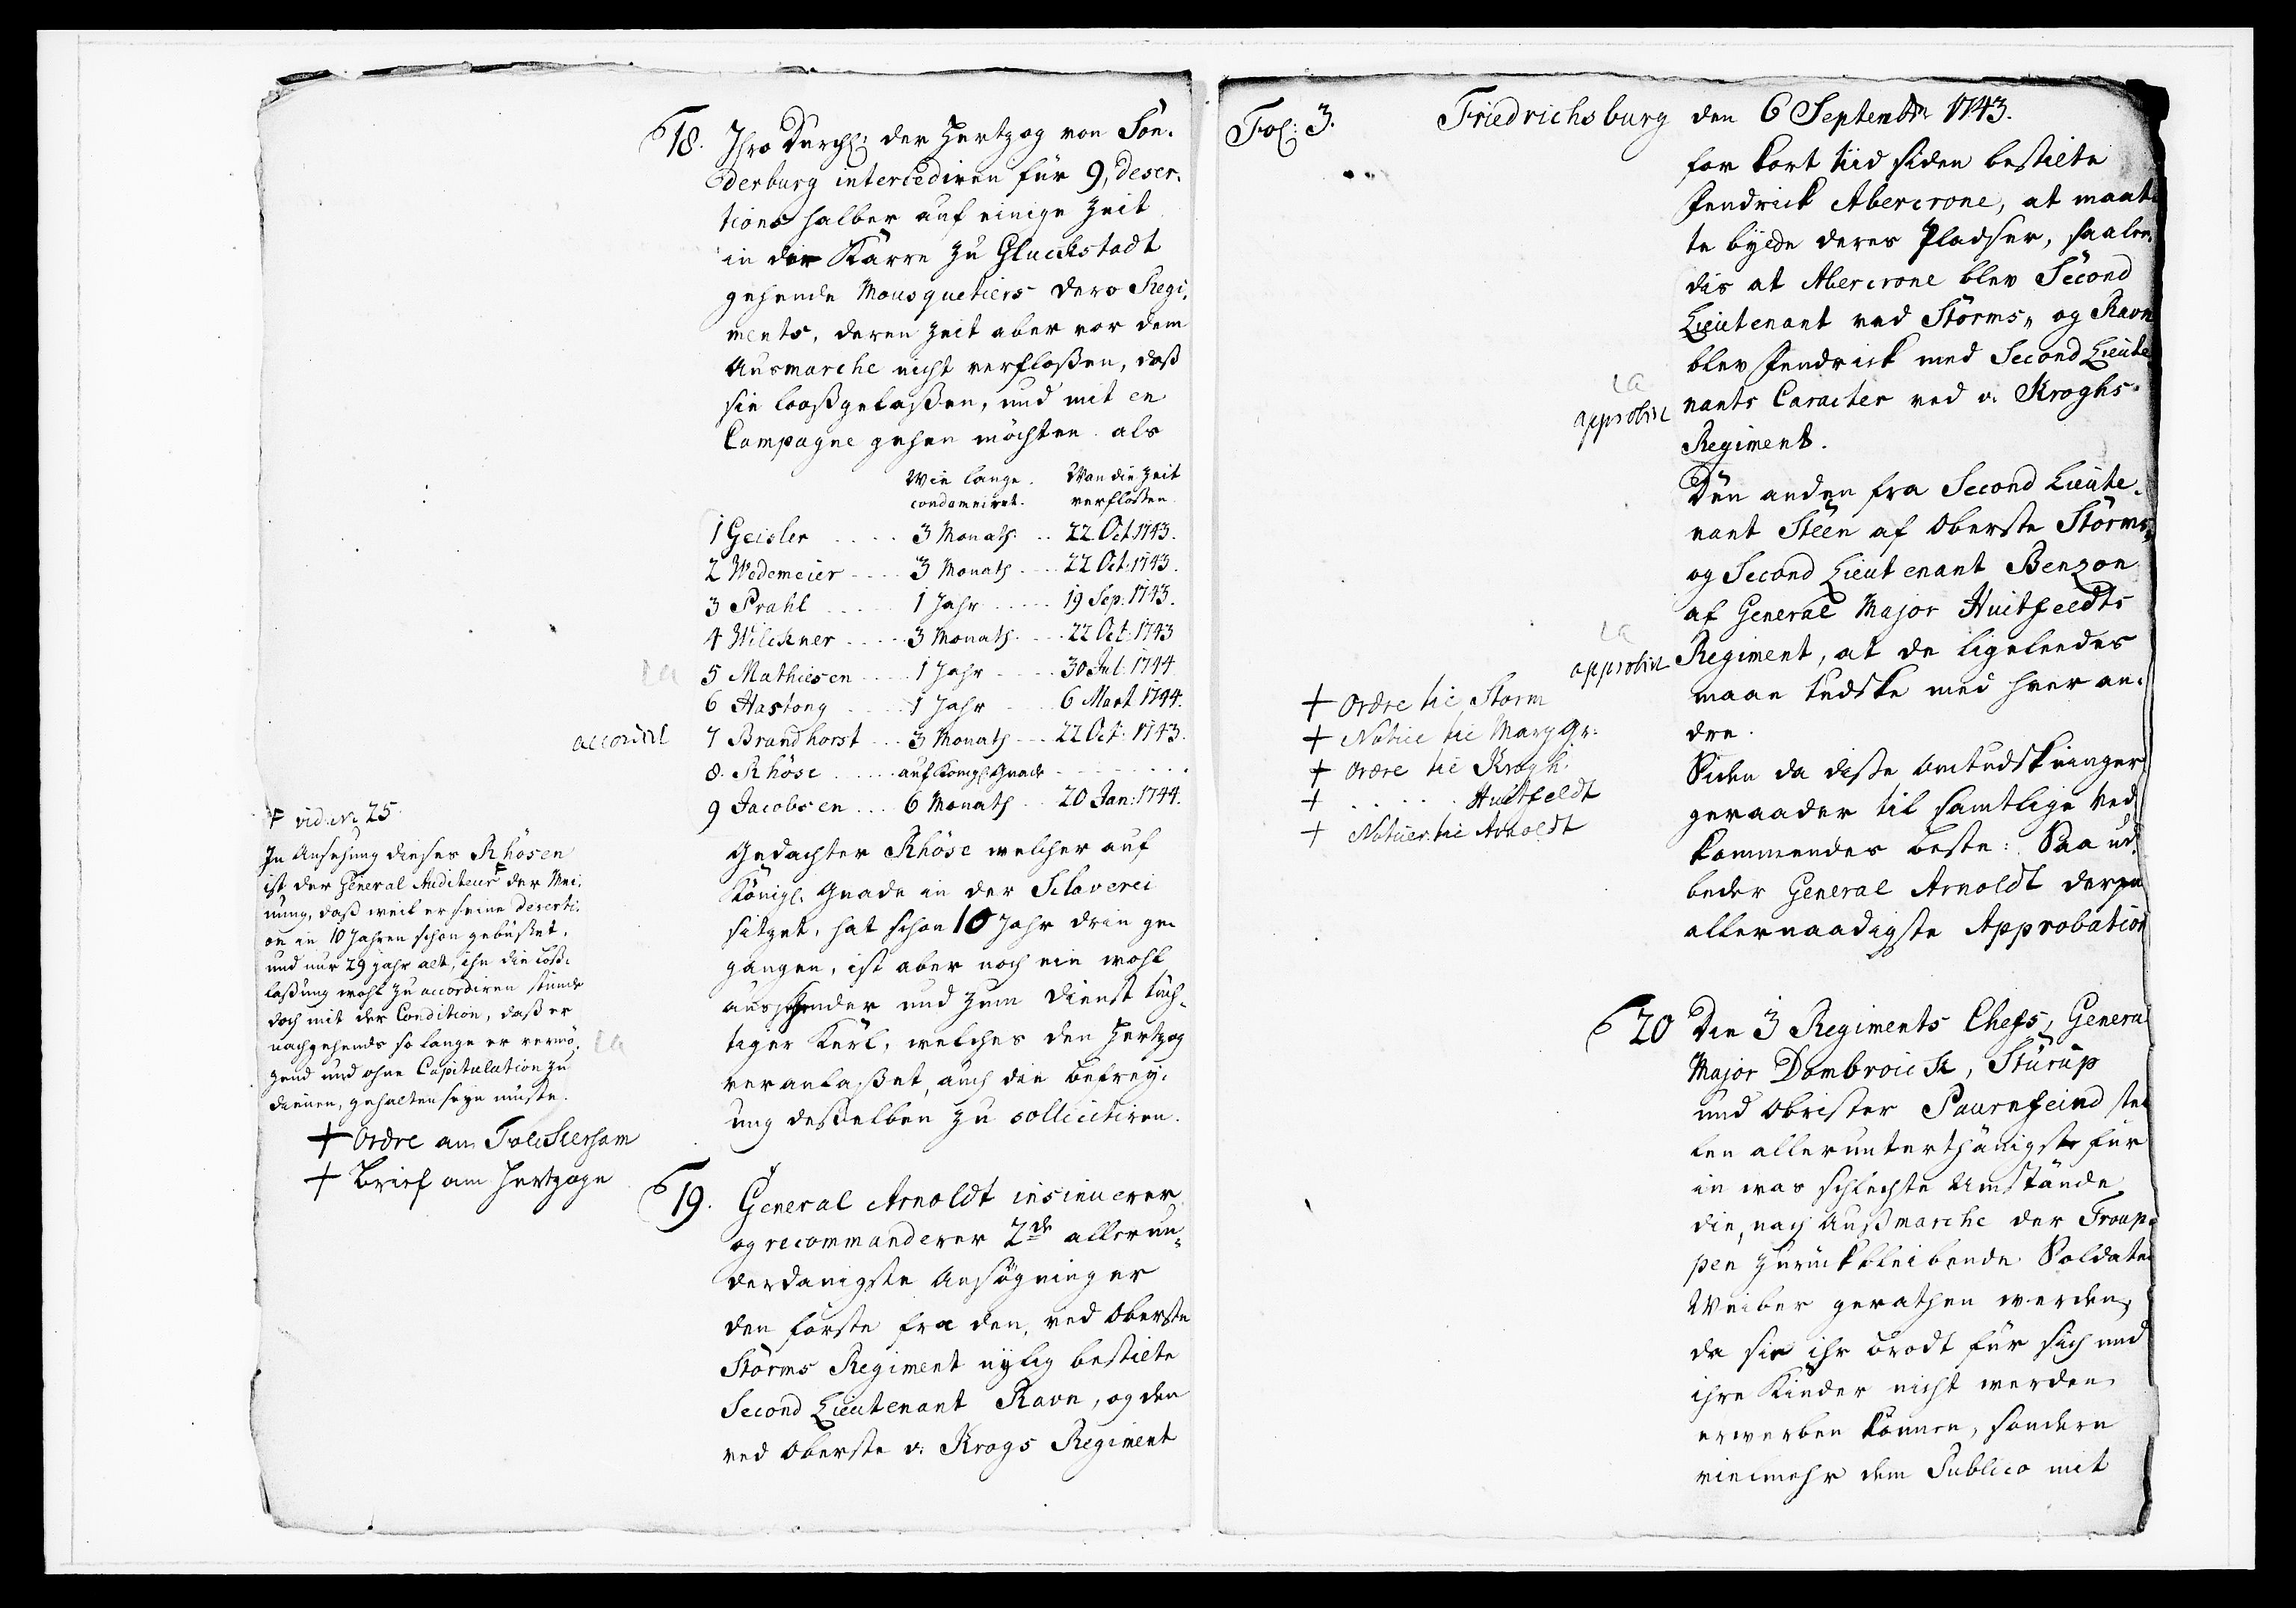 18. Ihro Durchl: der Hertzog von Son-
derburg intercediren für 9, deser-
tions halber auf einige Zeit
in die Karre zu Gluckstadt
gehende Mousquetiers dero Regi-
ments, deren Zeit aber vor dem
Ausmarche nicht verfloßen, daß
sie looßgelaßen, und mit en
Campagne gehen möchten als
Wie lange condemniret. Wan die Zeit verfloßen
1 Geisler .... 3 Monath .. 22 Oct 1743.
2 Wedemeier .... 3 Monath .... 22 Oct: 1743.
3 Prahl ..... 1 Jahr ..... 19 Sep: 1743.
4 Wilckner .... 3 Monath .... 22 Oct: 1743
5 Mathiesen .... 1 Jahr .... 30 Jul: 1744
6 Hastong .... 1 Jahr .... 6 Mart 1744.
7 Brandhorst ... 3 Monath ... 22 Oct: 1743.
8. Rhöse ..... auf Königl Gnade
9 Jacobsen ... 6 Monath ... 20 Jan: 1744.
Gedachter Rhöse welcher auf
Königl. Gnade in der Sclaverei
sitzet, hat schon 10 Jahr drin ge-
gangen, ist aber noch ein wohl
aussehender und zum Dienst tüch-
tiger Kerl, welches den Hertzog
veranlaßet, auch die Befrey-
ung deßelben zu sollicitiren.
accordirt
vid. 25
In Ansehung dieses Rhösen
ist der General Auditeur der Mei-
nung, daß weil er seine Deserti-
on in 10 Jahren schon gebüßet,
und nur 29 Jahr alt, ihn die Loß-
laßung wohl zu accordiren stünde
doch mit der Condition, daß er
nachgehends so lange er vermö-
gend und ohne Capitulation zu
dienen, gehalten seyn müste.
+ Ordre an
+ Brief am Hertzoge
19. General Arnoldt insinuerer
og recommanderer 2de allerun-
derdanigste Ansögninger
den förste fra den, ved Oberste
Störms Regiment nylig bestilte
Second Lieutenant Ravn, og den
ved Oberste v. Krogs Regiment
Fol: 3. Friedrichsburg den 6 Septembr 1743.
for kort tiid siden bestilte
Fendrick Abercrone, at maat-
te bytte deres Pladser, saale-
dis at Abercrone blev Second
Lieutenant ved Störms, og Ravn
blev Fendrick med Second Lieute-
nants Caracter ved v. Kroghs
Regiment.
approbirt
Den anden fra Second Lieute-
nant Steen af Oberste Störms
og Second Lieutenant Benzon
af General Major Huitfeldts
Regiment, at de ligeledes
maae tudske med hver an-
dre.
approbirt
+ Ordre til Storm
+ Notice til Marggr:
+ Ordre til Krogh:
+ ..... Huitfeldt
+ Notice til Arnoldt
Siden da disse Omtudskninger
geraader til samtlige Ved-
kommendes beste: Saa ud-
beder General Arnoldt derpaa
allernaadigste Approbation
20 Die 3 Regiments Chefs, General
Major Dombroick, Stürup
und Obrister Paurnfeind stel-
len allerunterthänigst für
in was schlechte Umstände
die, nach Außmarche der Troup-
pen zurückbleibende Soldaten
Weiber gerathen werden,
da sie ihr Brodt für sich und
ihre Kinder nicht werden
erwerben können, sondern
vielmehr dem Publico mit